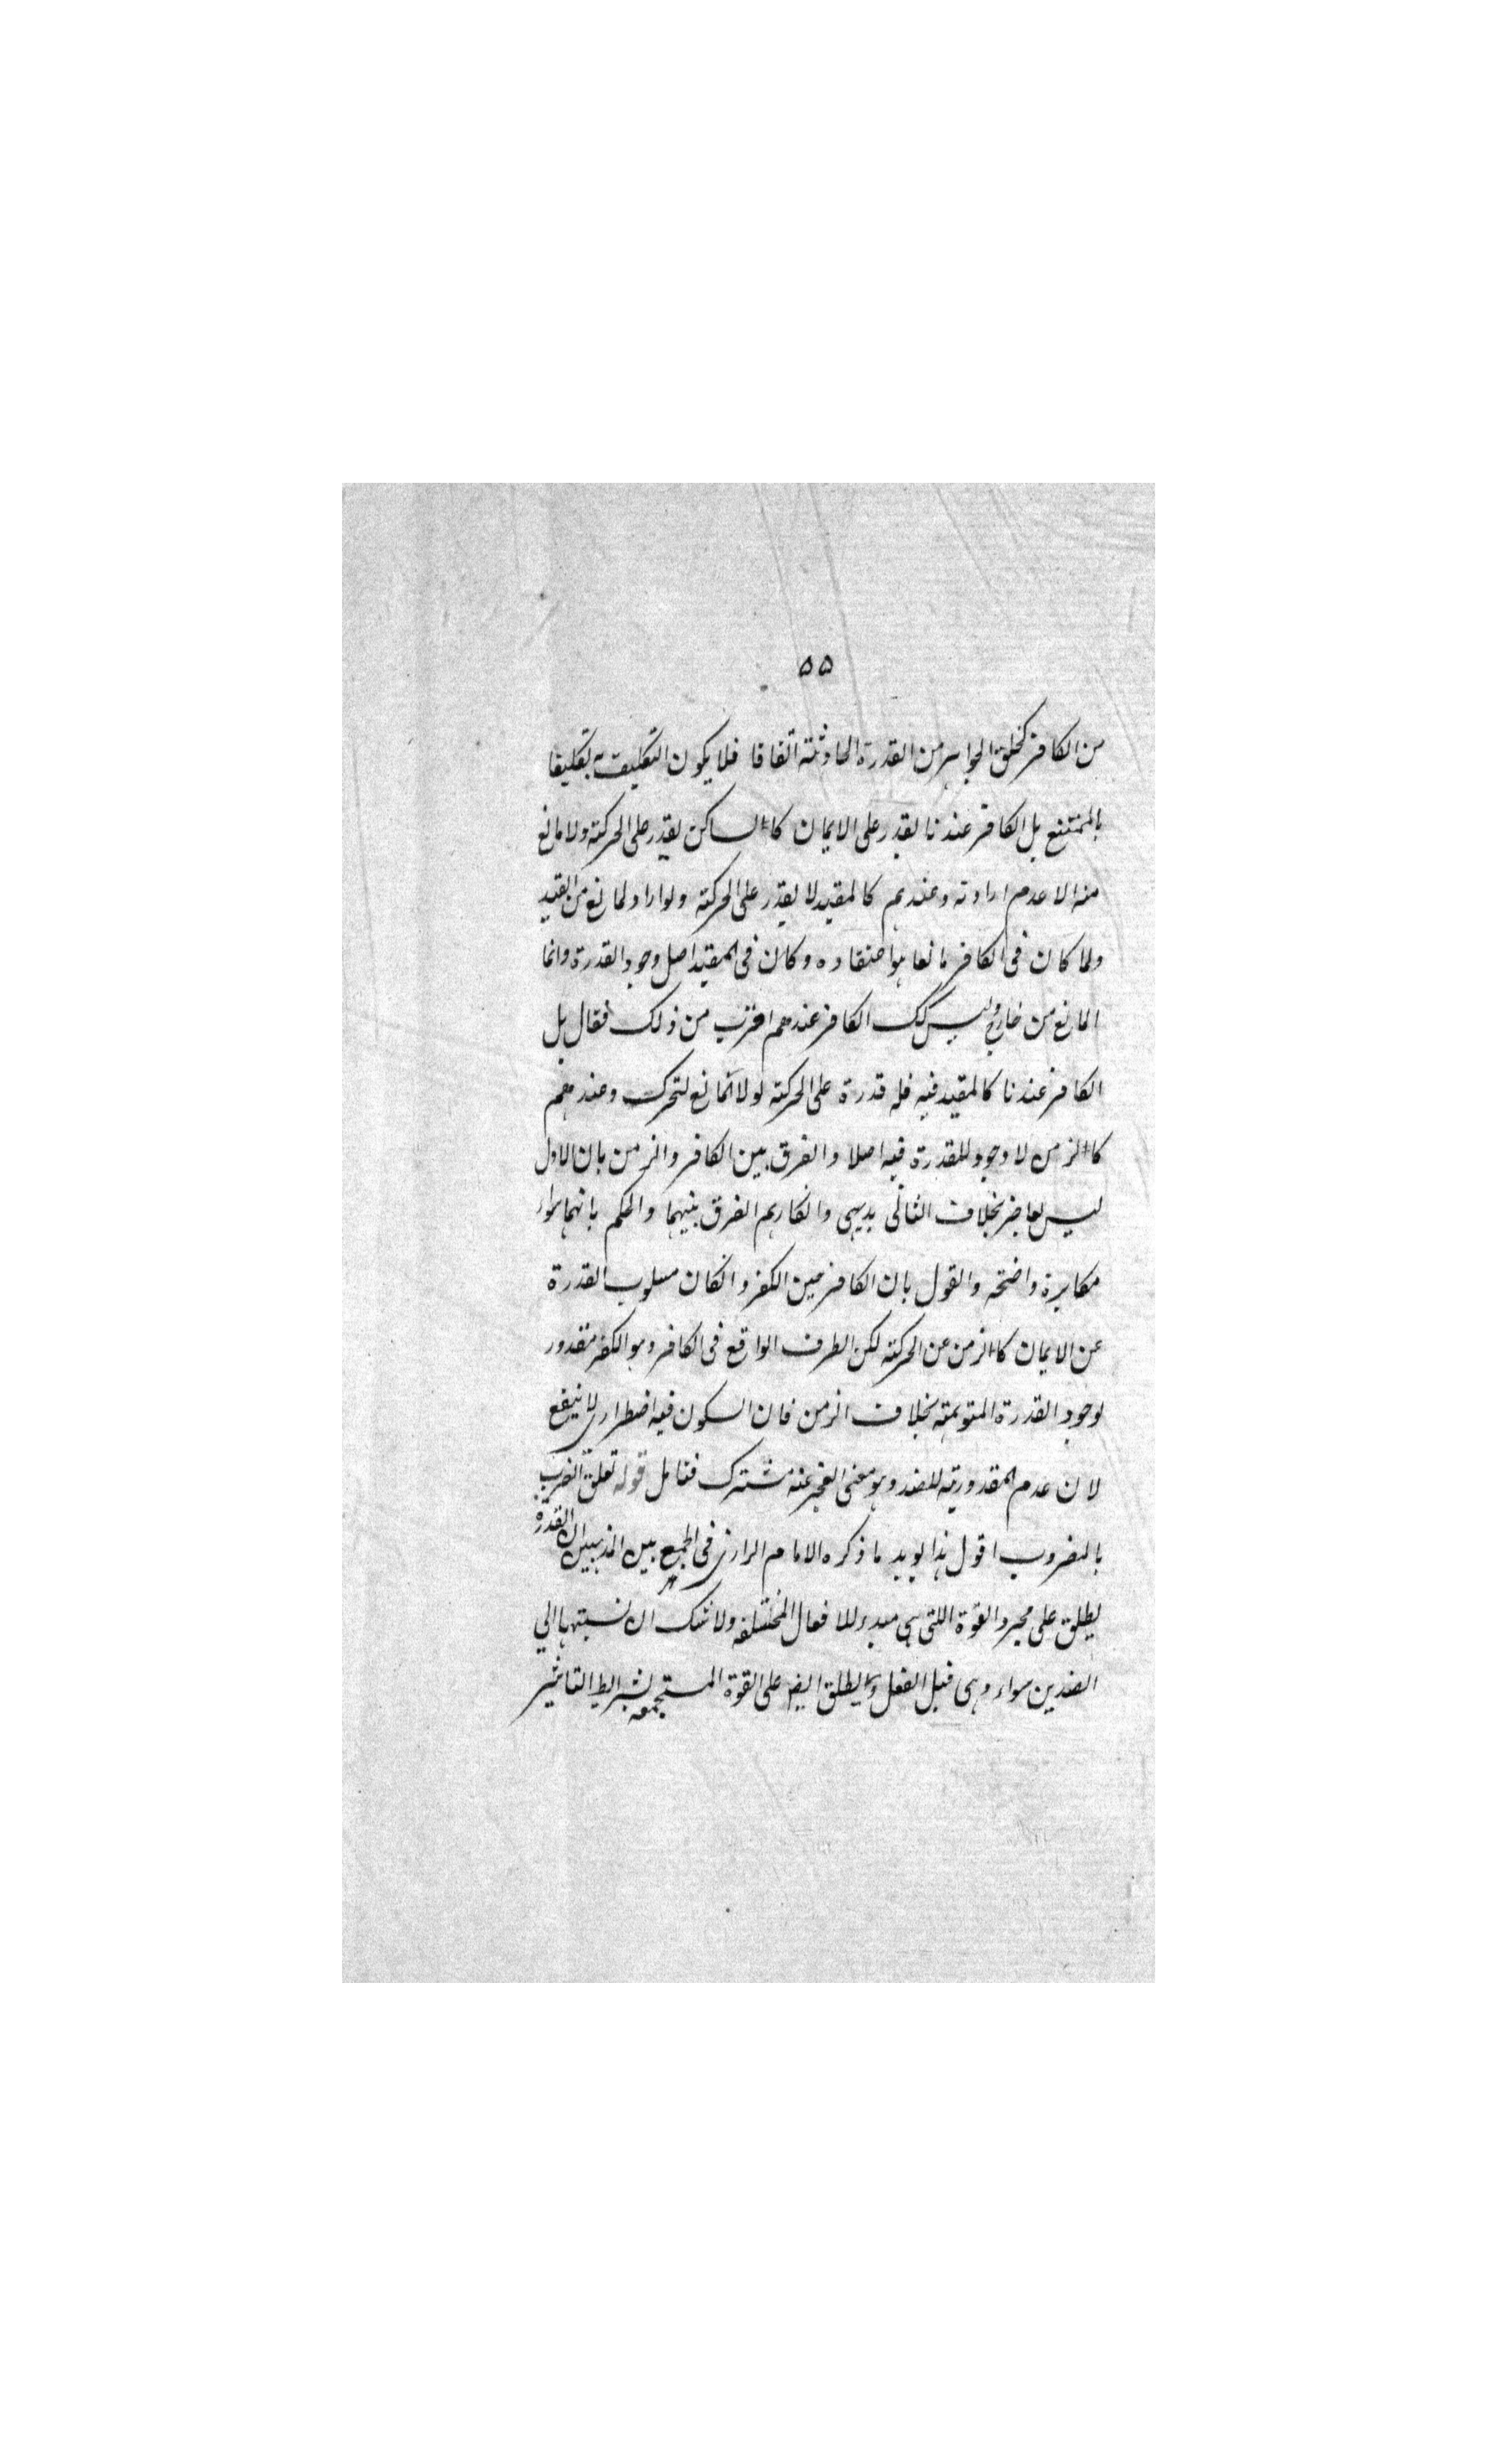 ۵۵
من الكافر كخلق الجواهر من القدرة الحادثة اتفاقا فلا يكون التكليف به تكليفا
بالممتنع بل الكافر عندنا يقدر على الايمان كالساكن يقدر على الحركة ولا مانع
منه الا عدم ارادته وعندهم كالمقيد لا يقدر على الحركة ولو اراد لمانع من القيد
ولما كان فى الكافر مانعا هو اعتقاده وكان فى المقيد اصل وجود القدرة وانما
المانع من خارج وليس كك الكافر عندهم اضرب من ذلك فقال بل
الكافر عندنا كالمقيد فيه فله قدرة على الحركة لولا المانع لتحرك وعندهم
كالزمن لا وجود للقدرة فيه اصلا والفرق بين الكافر والزمن بان الاول
ليس بعاجز بخلاف الثانى بديهى وانكارهم الفرق بينهما والحكم بانهما سواء
مكابرة واضحة والقول بان الكافر حين الكفر وانكان مسلوب القدرة
عن الايمان كالزمن عن الحركة لكن الطرف الواقع فى الكافر وهو الكفر مقدور
لوجود القدرة المتوهمة بخلاف الزمن فان السكون فيه اضطرارى لا ينفع
لان عدم المقدورية للضد وهو معنى العجز عنه مشترك فتامل قوله تعلق الضرب
بالمضروب اقول هذا يويد ما ذكره الامام الرازى فى الجمع بين المذهبين ان القدرة
يطلق على مجرد القوة اللتى هى مبدء للافعال المختلفة ولا شك ان نسبتها الي
الضدين سواء وهى قبل الفعل ويطلق ايضا على القوة المستجمعة لشرايط التاثير